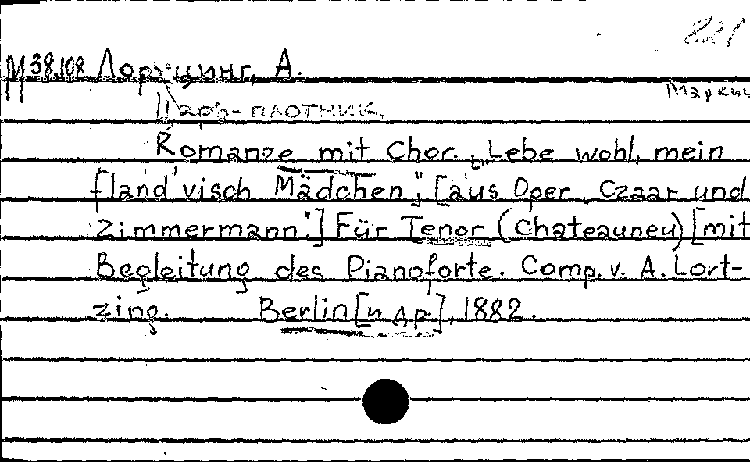 М 38.108 Лорцинг, А.
Царь-плотник.
Romanze mit Chor. „Lebe wohl, mein
fland'visch Mädchen", [aus Oper „Czaar und
Zimmermann".] Für Tenor (Chateauneu) [mit
Begleitung des Pianoforte. Comp. v. A. Lort-
zing. Berlin [и др.], 1882.